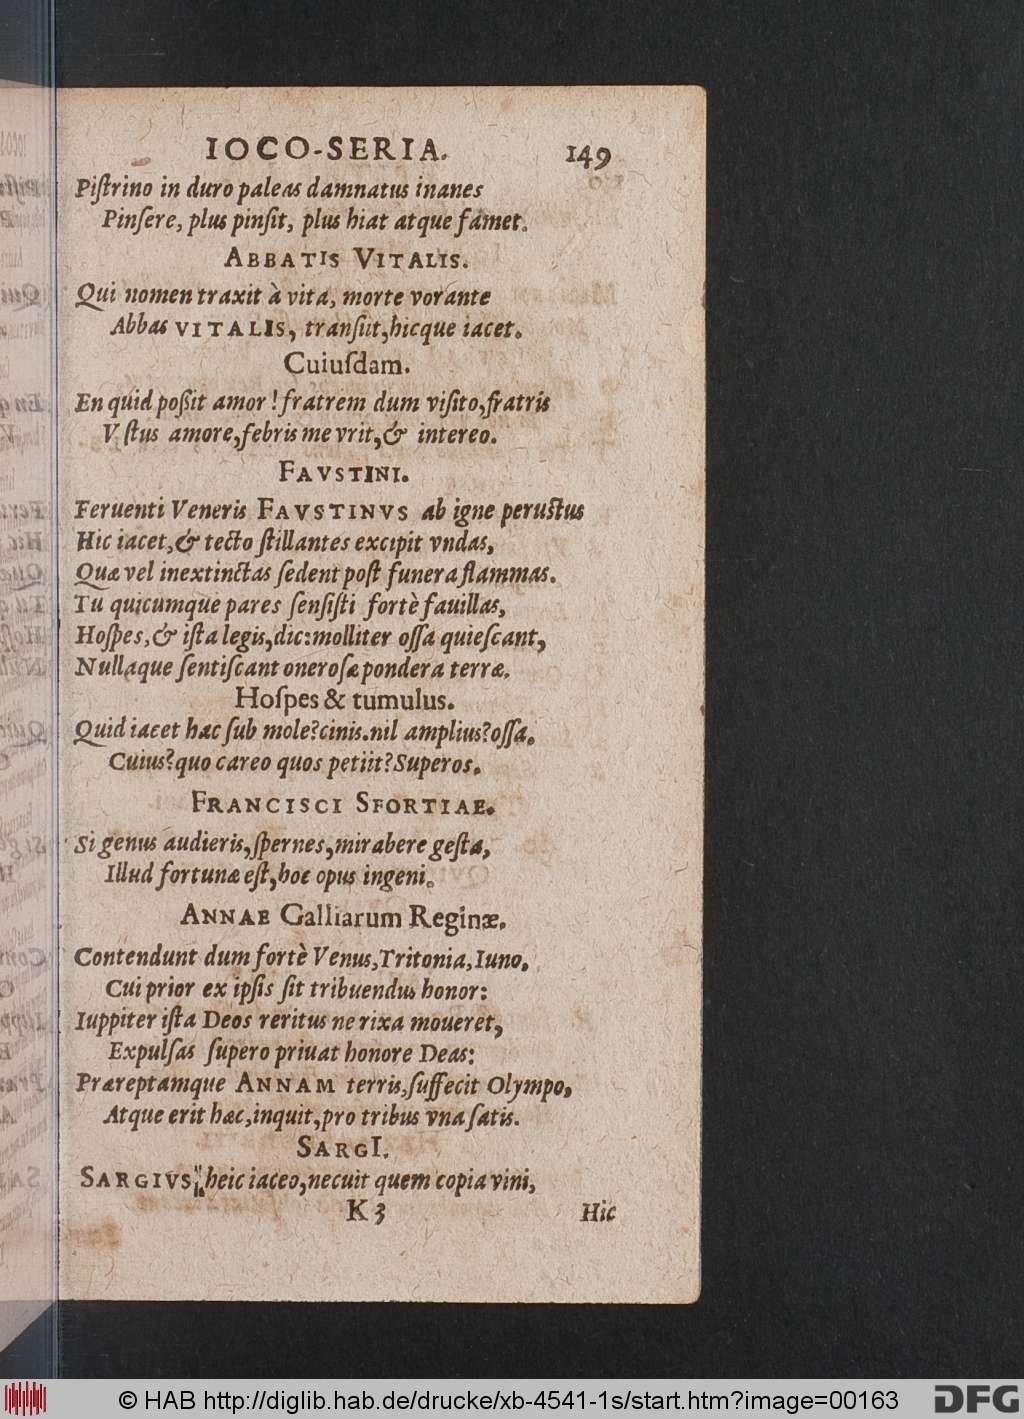 IOCO-SERIA. 149
Piſtrino in duro paleas damnatus inanes
Pinſere, plus pinſit, plus hiat atque famet.
ABBATIS VITALIS.
Qui nomen traxit à vita, morte vorante
Abbas VITALIS, tranſiit, hicque iacet.
Cuiuſdam.
En quid poßit amor! fratrem dum viſito, fratris
Vſtus amore, febris me vrit, & intereo.
FAVSTINI.
Feruenti Veneris FAVSTINVS ab igne peruſtus
Hic iacet, & tecto ſtillantes excipit vndas,
Quæ vel inextinctas ſedent poſt funera flammas.
Tu quicumque pares ſenſiſti fortè fauillas,
Hoſpes, & iſta legis, dic: molliter oſſa quieſcant,
Nullaque ſentiſcant oneroſæ pondera terræ.
Hoſpes & tumulus.
Quid iacet hac ſub mole? cinis. nil amplius? oſſa.
Cuius? quo careo quos petiit? Superos.
FRANCISCI SFORTIAE.
Si genus audieris, ſpernes, mirabere geſta,
Illud fortunæ eſt, hoc opus ingeni.
ANNAE Galliarum Reginæ.
Contendunt dum fortè Venus, Tritonia, Iuno,
Cui prior ex ipſis ſit tribuendus honor:
Iuppiter iſta Deos reritus ne rixa moueret,
Expulſas ſupero priuat honore Deas:
Præreptamque ANNAM terris, ſuffecit Olympo,
Atque erit hæc, inquit, pro tribus vna ſatis.
SARGI.
SARGIVS heic iaceo, necuit quem copia vini,
K 3 Hic
© HAB http://diglib.hab.de/drucke/xb-4541-1s/start.htm?image=00163 DFG